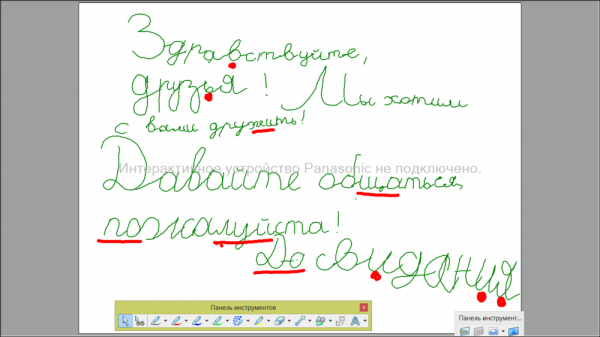 Здравствуйте,
друзья! Мы хотим
с вами дружить!
Интерактивное устройство Panasonic не подключено.
Давайте общаться,
пожалуйста!
До свидания
Панель инструментов
Панель инструмент...